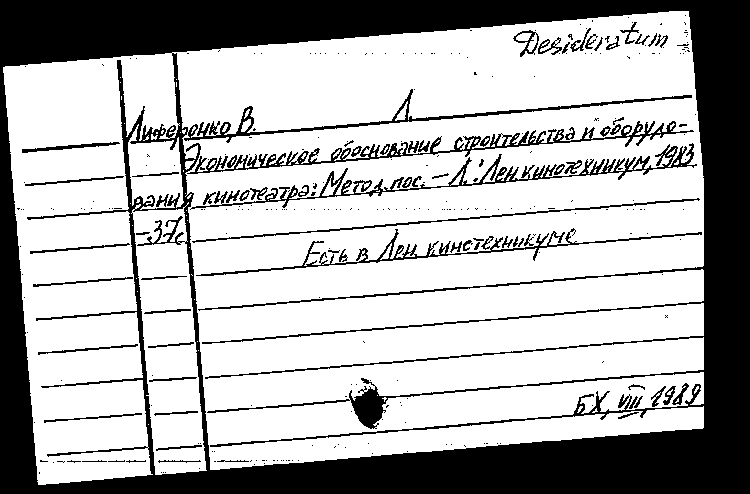 Desideratum
Лиференко, В. Л.
Экономическое обоснование строительства и оборудо-
вания кинотеатра: Метод. пос. – Л.: Ленкинотехникум, 1983
– 37с
Есть в Лен. кинотехникуме
БХ, VIII, 1989